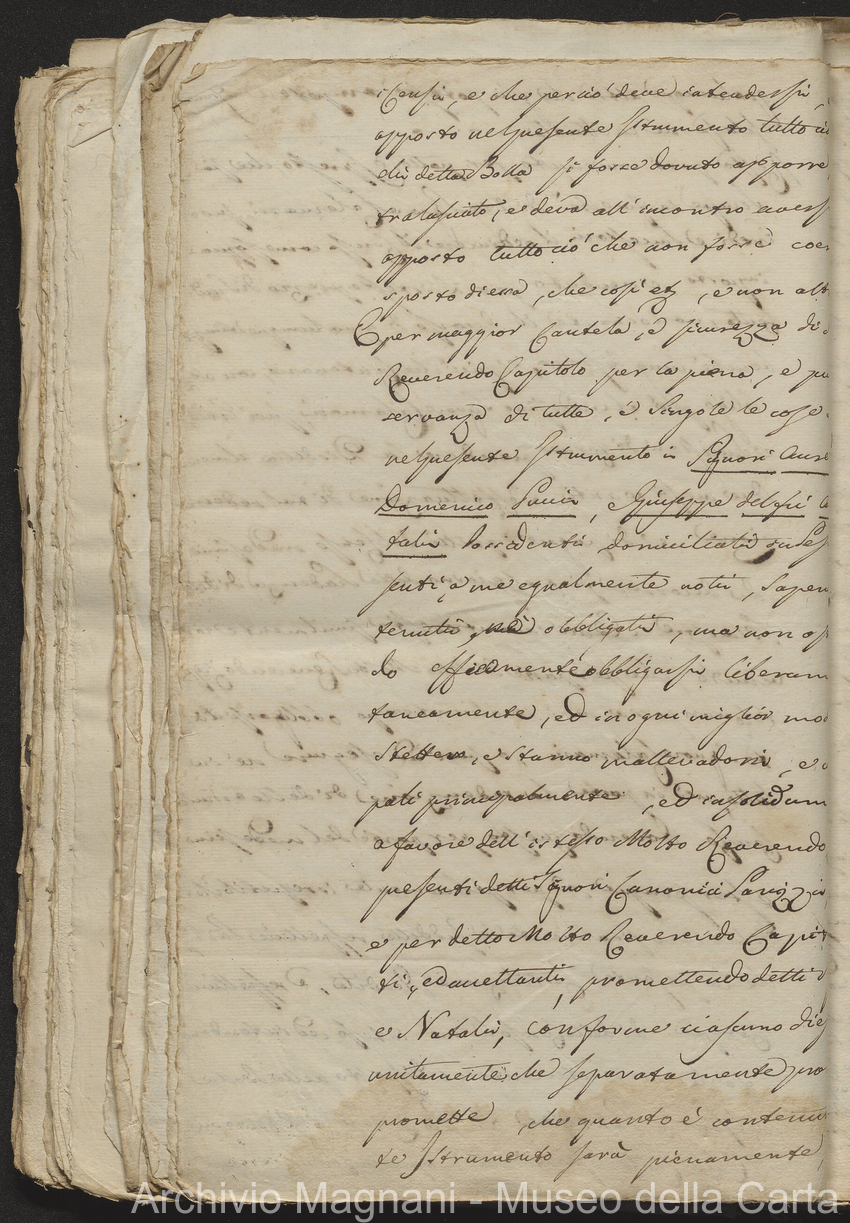 i Censi, e che perciò deve intendersi,
apposto nel presente Istrumento tutto ciò
di detta Bolla si fosse dovuto apporre
tralasciato, e devà all'incontro avers
apposto tutto ciò che non fosse coe
sposto di essa, che così etz, e non alt
E per maggior Cautela, e sicurezza di
Reverendo Capitolo per la piena, e pu
servanza di tutte, e singole le cose
nel presente Istrumento i Signori Aure
Domenico Pucci, e Giuseppe del fù
talii Possidenti domiciliati in Pes
senti, a me egualmente noti, Sapen
tenuti, obbligati, ma non os
do efficacmente obbligarsi liberam
taneamente, ed in ogni miglior mo
Stettero, e stanno mallevadori, e
pali principalmente, ed insolidum
a favore dell'istesso Molto Reverendo
presenti detti Signori Canonici
e per detto Molto Reverendo Capi
ti, ed accettanti, promettendo detti
e Natalii, conforme ciascuno di
unitamente che separatamente pro
promette, che quanto è contenu
te Istrumento sarà pienamente
Archivio Magnani - Museo della Carta